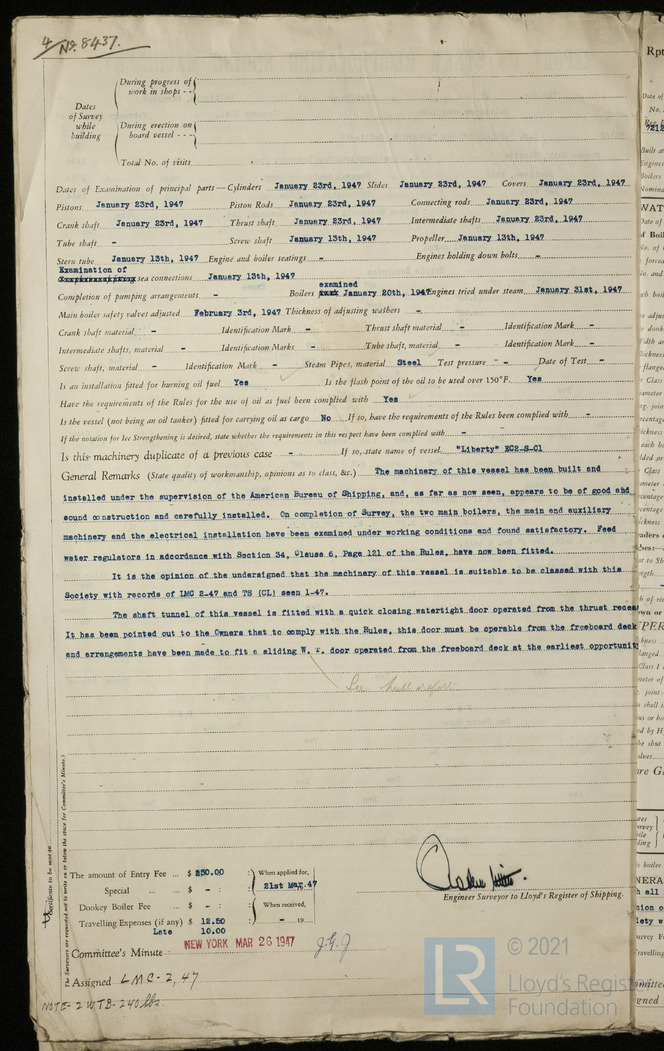 4
No. 8437.
During progress of work in shops - -
Dates of Survey while building
During erection on board vessel - - -
Total No. of visits
Dates of Examination of principal parts — Cylinders January 23rd, 1947 Slides January 23rd, 1947 Covers January 23rd, 1947
Pistons January 23rd, 1947 Piston Rods January 23rd, 1947 Connecting rods January 23rd, 1947
Crank shaft January 23rd, 1947 Thrust shaft January 23rd, 1947 Intermediate shafts January 23rd, 1947
Tube shaft - Screw shaft January 13th, 1947 Propeller January 13th, 1947
Stern tube January 13th, 1947 Engine and boiler seatings - Engines holding down bolts -
Examination of sea connections January 13th, 1947
Completion of pumping arrangements - Boilers exemined January 20th, 1947 Engines tried under steam January 31st, 1947
Main boiler safety valves adjusted February 3rd, 1947 Thickness of adjusting washers -
Crank shaft material - Identification Mark - Thrust shaft material - Identification Mark -
Intermediate shafts, material - Identification Marks - Tube shaft, material - Identification Mark -
Screw shaft, material - Identification Mark - Steam Pipes, material Steel Test pressure - Date of Test -
Is an installation fitted for burning oil fuel Yes Is the flash point of the oil to be used over 150°F. Yes
Have the requirements of the Rules for the use of oil as fuel been complied with Yes
Is the vessel (not being an oil tanker) fitted for carrying oil as cargo No If so, have the requirements of the Rules been complied with -
If the notation for Ice Strengthening is desired, state whether the requirements in this respect have been complied with -
Is this machinery duplicate of a previous case - If so, state name of vessel "Liberty" EC2-S-C1
General Remarks (State quality of workmanship, opinions as to class, &c.) The machinery of this vessel has been built and
installed under the supervision of the American Bureau of Shipping, and, as far as now seen, appears to be of good and
sound construction and carefully installed. On completion of Survey, the two main boilers, the main and auxiliary
machinery and the electrical installation have been examined under working conditions and found satisfactory. Feed
water regulators in adcordance with Section 34, Clause 6, Page 121 of the Rules, have now been fitted.
It is the opinion of the undersigned that the machinery of this vessel is suitable to be classed with this
Society with records of LMC 2-47 and TS (CL) seen 1-47.
The shaft tunnel of this vessel is fitted with a quick closing watertight door operated from the thrust recess
It has been pointed out to the Owners that to comply with the Rules, this door must be operable from the freeboard deck
and arrangements have been made to fit a sliding W. T. door operated from the freeboard deck at the earliest opportunit
See hull report
Certificate to be sent to
(The Surveyors are requested not to write on or below the space for Committee's Minute.)
The amount of Entry Fee ... $ 250.00 When applied for,
Special ... ... $ - : 21st Mar. 47
Donkey Boiler Fee ... $ - : When received,
Travelling Expenses (if any) $ 12.50 - 19
Late 10.00
Engineer Surveyor to Lloyd's Register of Shipping.
Committee's Minute NEW YORK MAR 26 1947
Assigned LMC-2,47
NOTE- 2WTB- 240 lbs.
LR © 2021
Lloyd's Register
Foundation